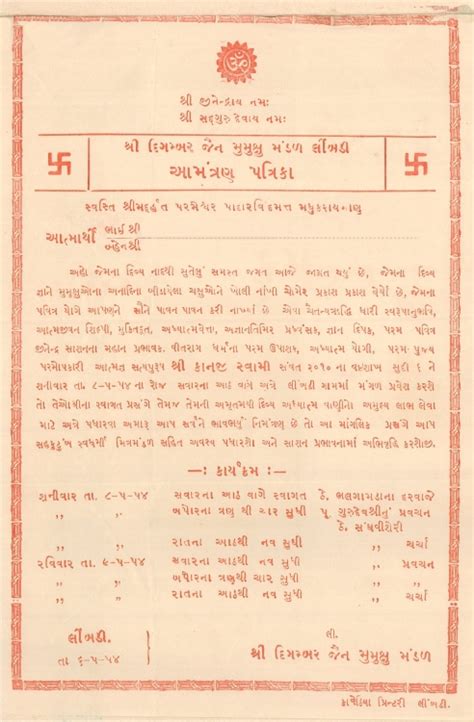 ૐ
શ્રી જીનેન્દ્રાય નમઃ
શ્રી સદ્ગુરુ દેવાય નમઃ
શ્રી દિગમ્બર જૈન મુમુક્ષુ મંડળ લીંબડી
આમંત્રણ પત્રિકા
સ્વસ્તિ
આત્માર્થી ભાઈશ્રી
બ્હેનશ્રી
અહો જેમના દિવ્ય નાદથી સુતેલું સમસ્ત જગત આજે જાગ્રત થયું છે, જેમના દિવ્ય
જ્ઞાને મુમુક્ષુઓના અનાદિના બીડાયેલા ચક્ષુઓને ખોલી નાંખી ચોમેર પ્રકાશ પ્રકાશ વેર્યો છે, જેમના
પવિત્ર યોગે આપણને સૌને પાવન પાવન કરી નાખ્યા છે એવા ચૈતન્યઋદ્ધિ ધારી સ્વરૂપાનુભવિ,
આત્મજીવન શિલ્પી, મુક્તિદૂત, અધ્યાત્મવેત્તા, અજ્ઞાનતિમિર પ્રધ્વંસક, જ્ઞાન દિપક, પરમ પવિત્ર
જીનેન્દ્ર શાસનના મહાન પ્રભાવક, વીતરાગ ધર્મના પરમ ઉપાશક, અધ્યાત્મ યોગી, પરમ પુજ્ય
પરમોપકારી આત્મજ્ઞ સત્પુરૂષ શ્રી કાનજી સ્વામી સંવત ૨૦૧૦ના વૈશાખ સુદી ૬ ને
શનીવાર તા. ૮-૫-૫૪ના રોજ સવારના આઠ વાગે અત્રે લીંબડી ગામમાં મંગળ પ્રવેશ કરશે
તો તેઓશ્રીના સ્વાગત પ્રસંગે તેમજ તેમની અમૃતમયી દિવ્ય અધ્યાત્મ વાણીનો અમુલ્ય લાભ લેવા
માટે અત્રે પધારવા અમારૂં આપ સર્વને ભાવભર્યું નિમંત્રણ છે. તો આ માંગલિક પ્રસંગે આપ
સહકુટુંબ સ્વધર્મી મિત્રમંડળ સહિત અવશ્ય પધારશો અને શાસન પ્રભાવનામાં અભિવૃદ્ધિ કરશોજી.
—: કાર્યક્રમ :—
શનીવાર તા. ૮-૫-૫૪ સવારના આઠ વાગે સ્વાગત ઠે. ભલગામડાના દરવાજે
,, ,, બપોરના ત્રણ થી ચાર સુધી પૂ. ગુરુદેવશ્રીનું પ્રવચન
ઠે. સંઘવીશેરી
,, ,, રાતના આઠથી નવ સુધી ,, ચર્ચા
રવિવાર તા. ૯-૫-૫૪ સવારના આઠથી નવ સુધી ,, પ્રવચન
,, ,, બપોરના ત્રણથી ચાર સુધી ,, ,,
,, ,, રાતના આઠથી નવ સુધી ,, ચર્ચા
લીંબડી.
તા ૬-૫-૫૪
લી.
શ્રી દિગમ્બર જૈન મુમુક્ષુ મંડળ
પ્રિન્ટરી લીંબડી.